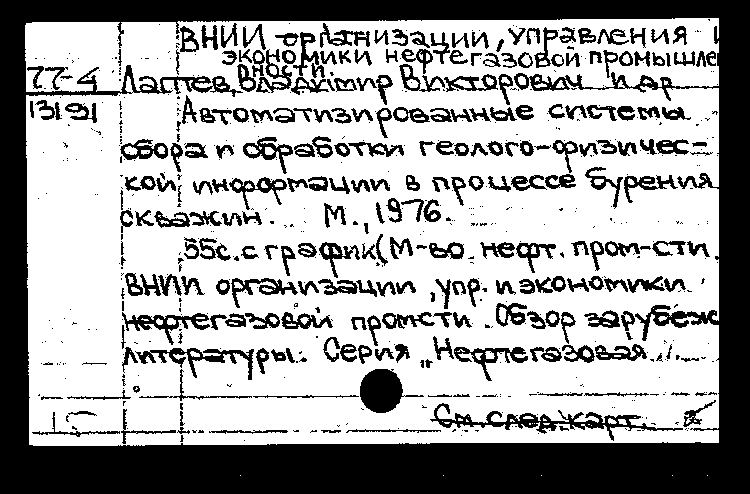 ВНИИ организации, управления
экономики нефтегазовой промышле
нности.
77-4 Лаптев, Владимир Викторович и др
13191 Автоматизированные системы
сбора и обработки геолого-физичес-
кой информации в процессе бурения
скважин. М., 1976.
55с. с график (М-во нефт. пром-сти.
ВНИИ организации, упр. и экономики
нефтегазовой промсти. Обзор зарубеж
литературы. Серия „Нефтегазовая
15 См. след. карт.